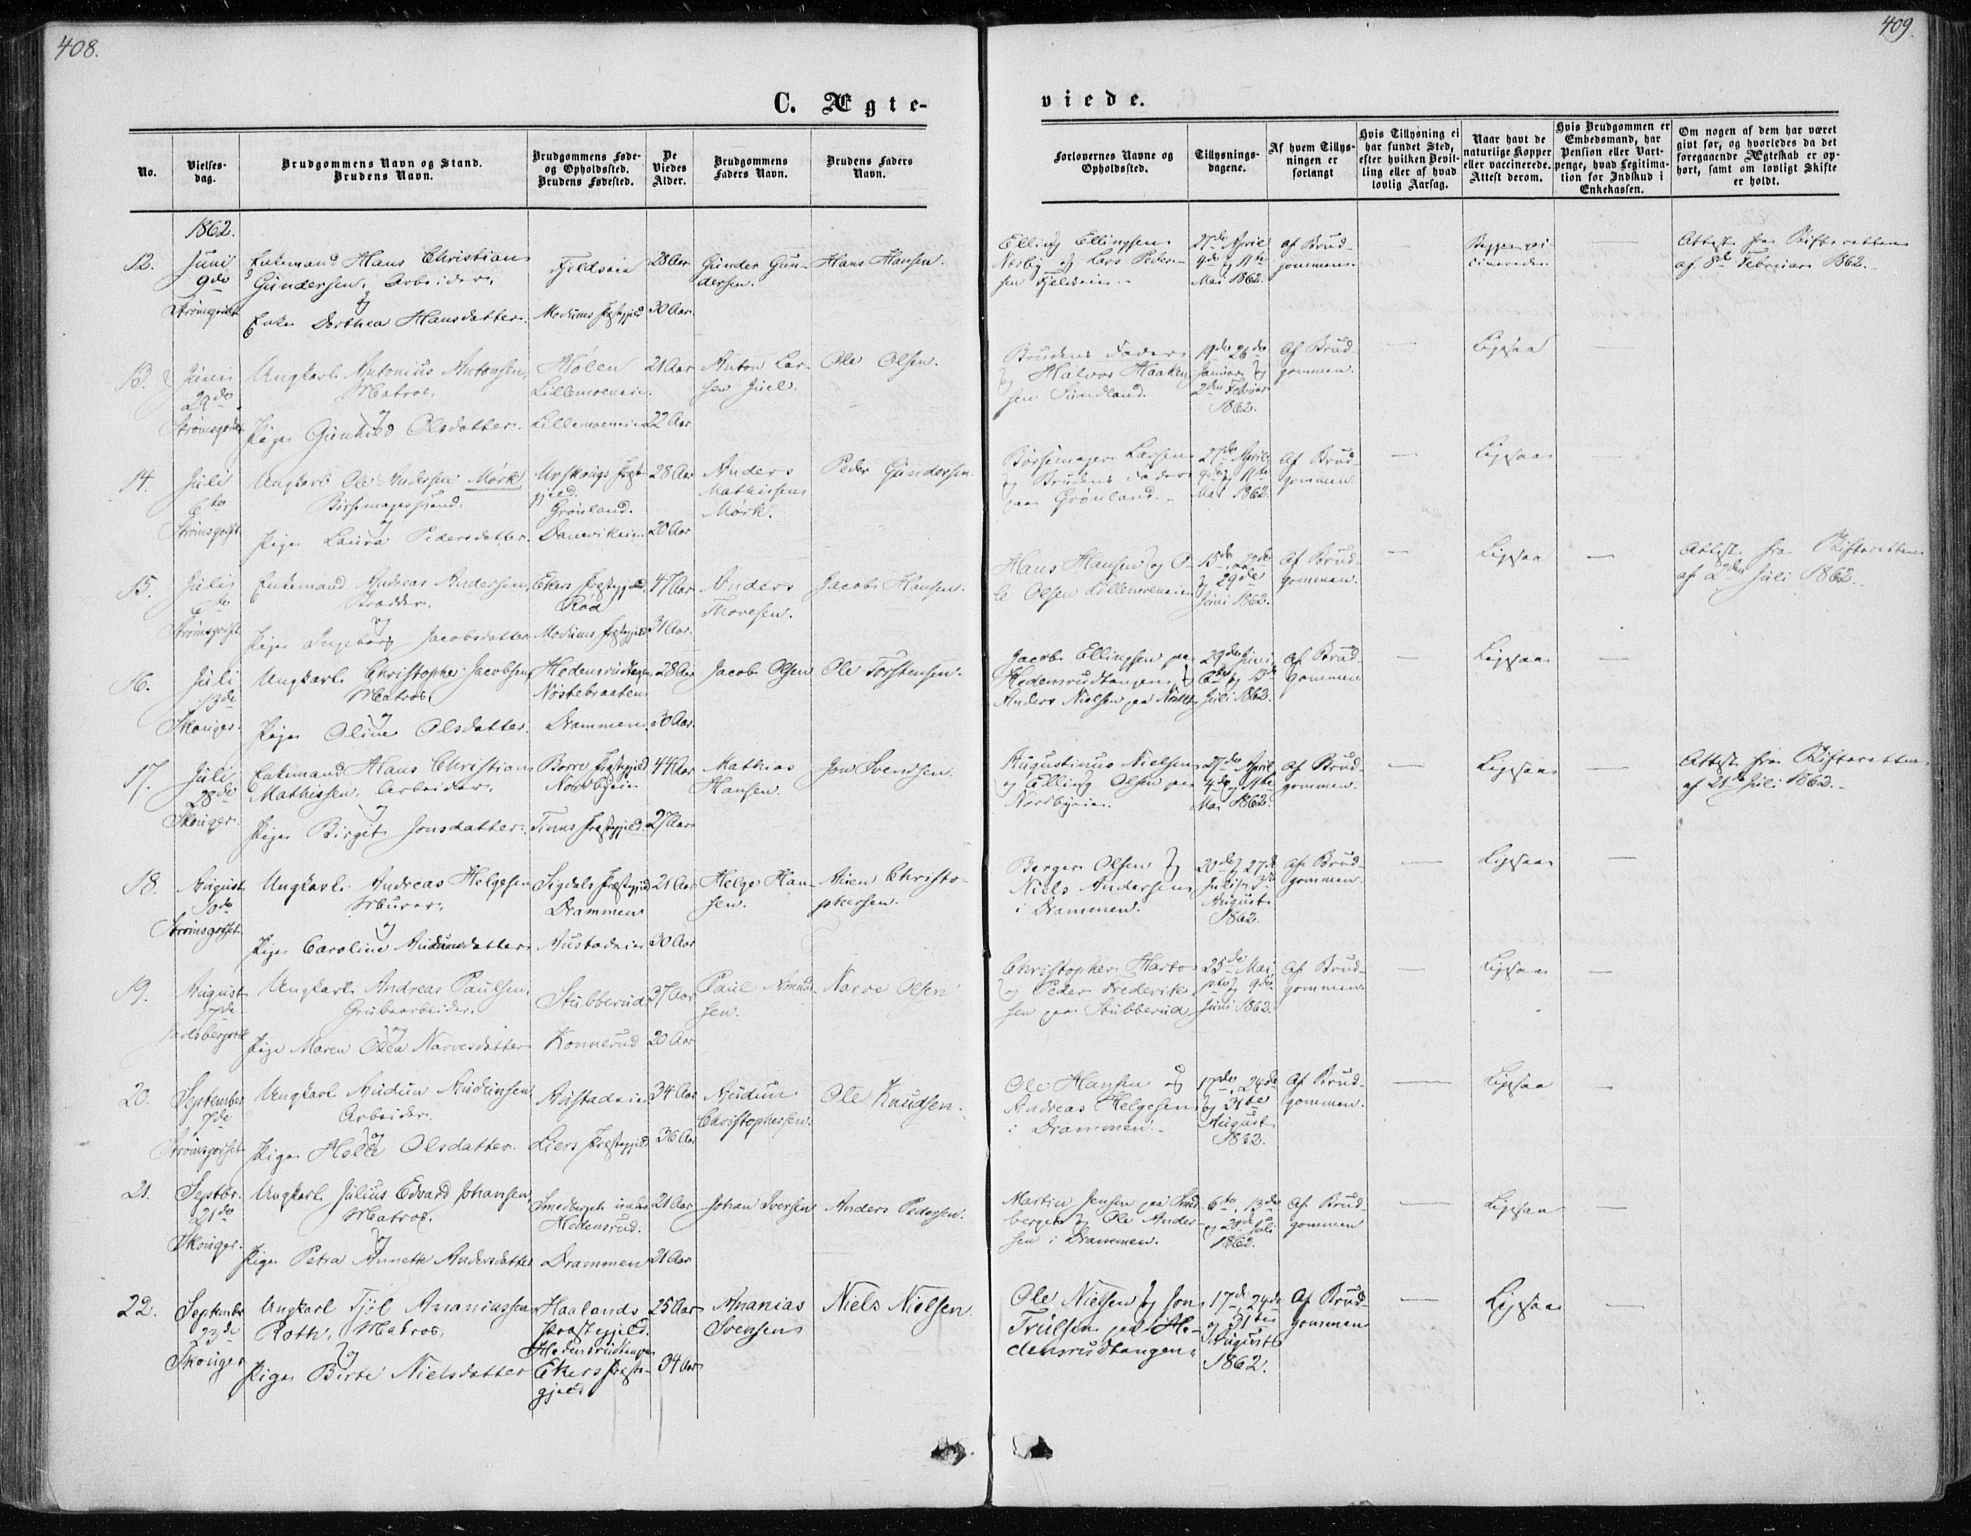 408.
409.
C. Ægte-
viede.
No.
Vielses-
dag.
Brudgommens Navn og Stand.
Brudens Navn.
Brudgommens Føde-
og Opholdssted.
Brudens Fødested.
De
Viedes
Alder.
Brudgommens
Faders Navn.
Brudens Faders
Navn.
Forlovernes Navne og
Opholdssted.
Tillysnings-
dagene.
Af hvem Tillys-
ningen er
forlangt
Hvis Tillysning ei
har fundet Sted,
efter hvilken Bevil-
ling eller af hvad
lovlig Aarsag.
Naar havt de
naturlige Kopper
eller vaccinerede.
Attest derom.
Hvis Brudgommen er
Embedsmand, har
Pension eller Vart-
penge, hvad Legitima-
tion for Indskud i
Enkekassen.
Om nogen af dem har været
givt før, og hvorledes da det
foregaaende Ægteskab er op-
hørt, samt om lovligt Skifte
er holdt.
1862.
12. Juni 9de Strømsgodset
Enkemand Hans Christian
Gundersen, Arbeider,
og
Enke Dorthea Hansdatter.
Fjeldveien
Modums Præstegjeld
28 Aar
30 Aar
Gunder Gun-
dersen.
Hans Hansen.
Elling Ellingsen
Nørby og Lars Peder-
sen Fjeldveien.
27de April
4de og 11te
Mai 1862.
af Brud-
gommen.
Attest fra Skifteretten
af 8de Februar 1862.
13. Juni 29de Strømsgodset
Ungkarl Antonius Antonsen,
Matros,
og
Pige Gunhild Olsdatter.
Hølen
Lillemoeveien.
Lillemoeveien
21 Aar
22 Aar
Anton Lar-
sen Juel.
Ole Olsen.
Brudens Fader
og Halvor Haaken-
sen Sundland.
19de 26de
Januar og
2den Februar
1862.
Af Brud-
gommen.
Ligesaa
14. Juli 6te Strømsgodset
Ungkarl Ole Andersen Mørk
Børsemagersvend,
og
Pige Laura Pedersdatter.
Urskougs Præst-
gjeld.
Grønland.
Danevikveien
28 Aar
20 Aar
Anders
Mathissen
Mørk.
Peder Gundersen
Børsemager Larsen
og Brudens Fader
paa Grønland.
27de April
4de og 11te
Mai 1862.
Af Brud-
gommen.
Ligesaa
15. Juli 6te Strømsgodset
Enkemand Andreas Andersen,
og
Pige Ingeborg Jacobsdatter
Ekers Præstegjeld,
Modums Præstegjeld
47 Aar
31 Aar.
Anders
Thoresen.
Jacob Hansen.
Hans Hansen og O-
le Olsen Lillemoeveien
15de, 22de
og 29de
Juni 1862.
Af Brud-
gommen.
Ligesaa
Attest fra Skifteretten
af 2den Juli 1862.
16. Juli 13de Skouger.
Ungkarl Christopher Jacobsen
Matros,
og
Pige Oline Olsdatter
Hedensrudtangen
Nøstebraaten
Drammen
28 Aar
30 Aar.
Jacob Olsen
Ole Torstensen.
Jacob Ellingsen paa
Hedensrudtangen og
Anders Nielsen paa
29de Juni
6te og 13de
Juli 1862.
Af Brud-
gommen.
Ligesaa
17. Juli 28de Skouger.
Enkemand Hans Christian
Mathissen, Arbeider,
og
Pige Birgit Jonsdatter.
Borre Præstegjeld
Nordbyeie
Tinns Præstegjeld.
44 Aar
27 Aar
Mathias
Hansen.
Jon Svendsen.
Augustinus Nielsen
og Elling Olsen paa
Nordbyeie.
27de April
4de og 11te
Mai 1862.
af Brud-
gommen.
Ligesaa
Attest fra Skifteretten
af 21de Juli 1862.
18. August 10de Strømsgodset
Ungkarl Andreas Helgesen
Murer,
og
Pige Caroline Audunsdatter
Sigdals Præstegjeld
Drammen
Austadveien
21 Aar
30 Aar
Helge Han-
sen.
Auen Christo-
phersen.
Berger Olsen og
Niels Andersen
i Drammen.
20de og 27de
Juli og 3de
August
1862.
Af Brud-
gommen.
Ligesaa
19. August 17de
Ungkarl Andreas Paulsen,
Grubearbeider,
og
Pige Maren Olea Narvesdatter
Stubberud
Konnerud
37 Aar
20 Aar
Paul Amund-
sen.
Narve Olsen
Christopher
og Peder Frederik-
sen paa Stubberud
25de Mai
1ste og 9de
Juni 1862.
Af Brud-
gommen.
Ligesaa
20. September 7de Strømsgodset
Ungkarl Audun Audunsen
Arbeider,
og
Pige Helle Olsdatter.
Austadveien
Liers Præstegjeld.
34 Aar
36 Aar
Audun
Christophersen.
Ole Knudsen.
Ole Hansen og
Andreas Helgesen
i Drammen.
17de, 24de
og 31te
August
1862.
Af Brud-
gommen.
Ligesaa
21. Septbr. 21de Skouger.
Ungkarl Julius Edvard Johansen,
Matros,
og
Pige Petra Annette Andersdatter
Smedberget under
Hedensrud.
Drammen
21 Aar
21 Aar
Johan Iversen
Anders Pedersen.
Martin Jensen paa Smed-
berget og Ole Ander-
sen i Drammen.
6te, 13de
og 20de Juli
1862.
Af Brud-
gommen
Ligesaa
22. September 23de Skouger
Ungkarl Tjöl Ananiassen
Roth, Matros,
og
Pige Birte Nielsdatter
Haalands
Præstegjeld.
Hedensrudtangen
Ekers Præste-
gjeld
25 Aar
34 Aar
Ananias
Svensen
Niels Nielsen.
Ole Nielsen og Jon
Trulsen paa He-
densrudtangen.
17de, 24de
og 31te
August
1862.
Af Brud-
gommen
Ligesaa